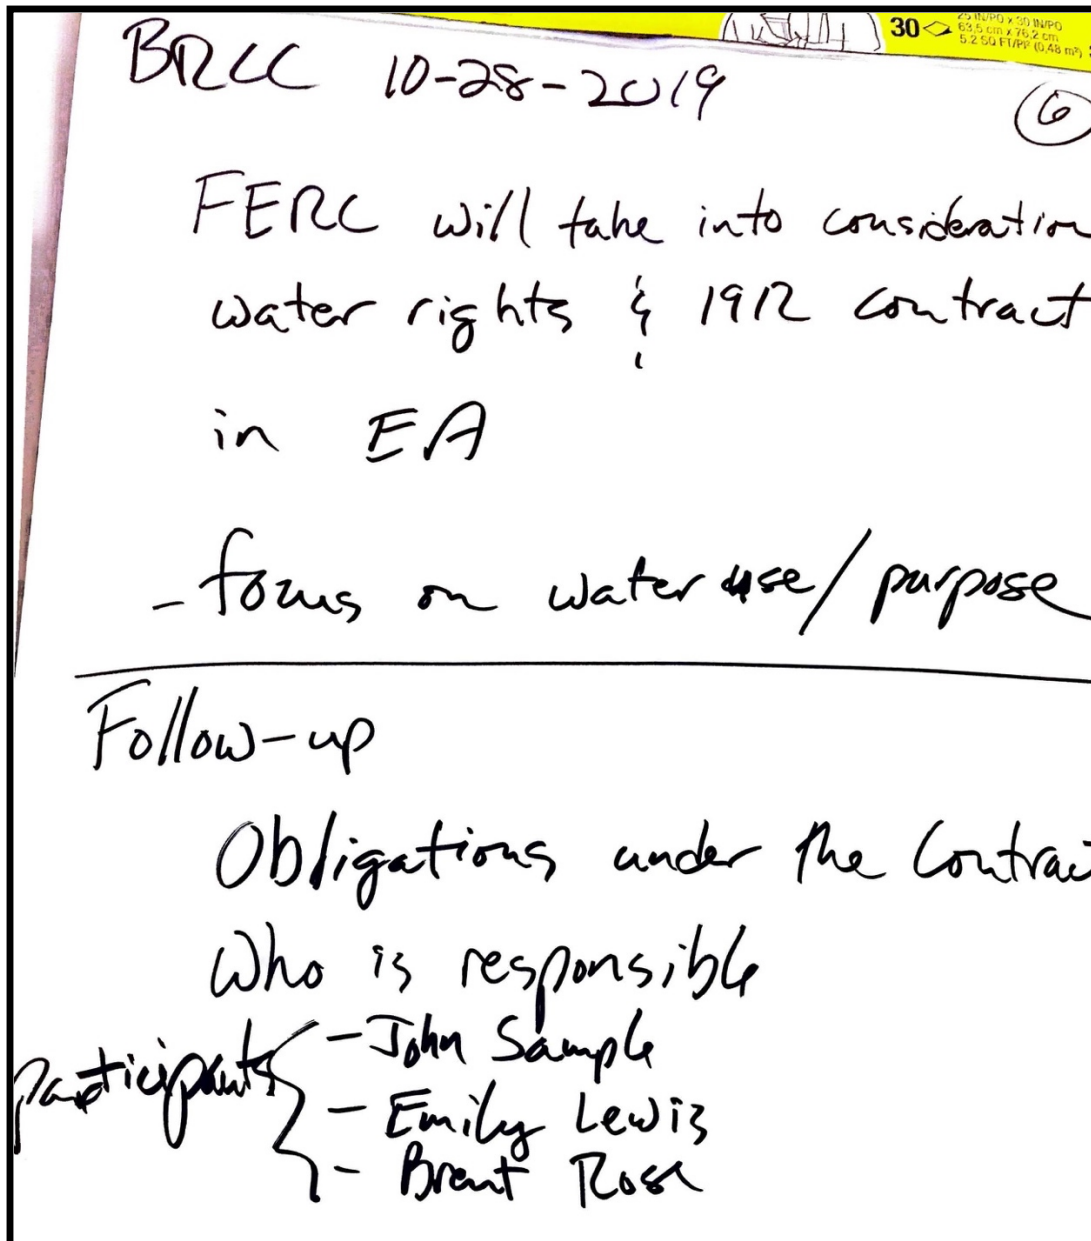 30
25 IN/PO x 30 IN/PO
63,5 cm x 76,2 cm
5.2 SQ FT/PP² (0,48 m²)
BRCC 10-28-2019
6
FERC will take into consideration
water rights & 1912 contract
in EA
- focus on water use/purpose
Follow-up
Obligations under the Contract
Who is responsible
participants
- John Sample
- Emily Lewis
- Brent Rose